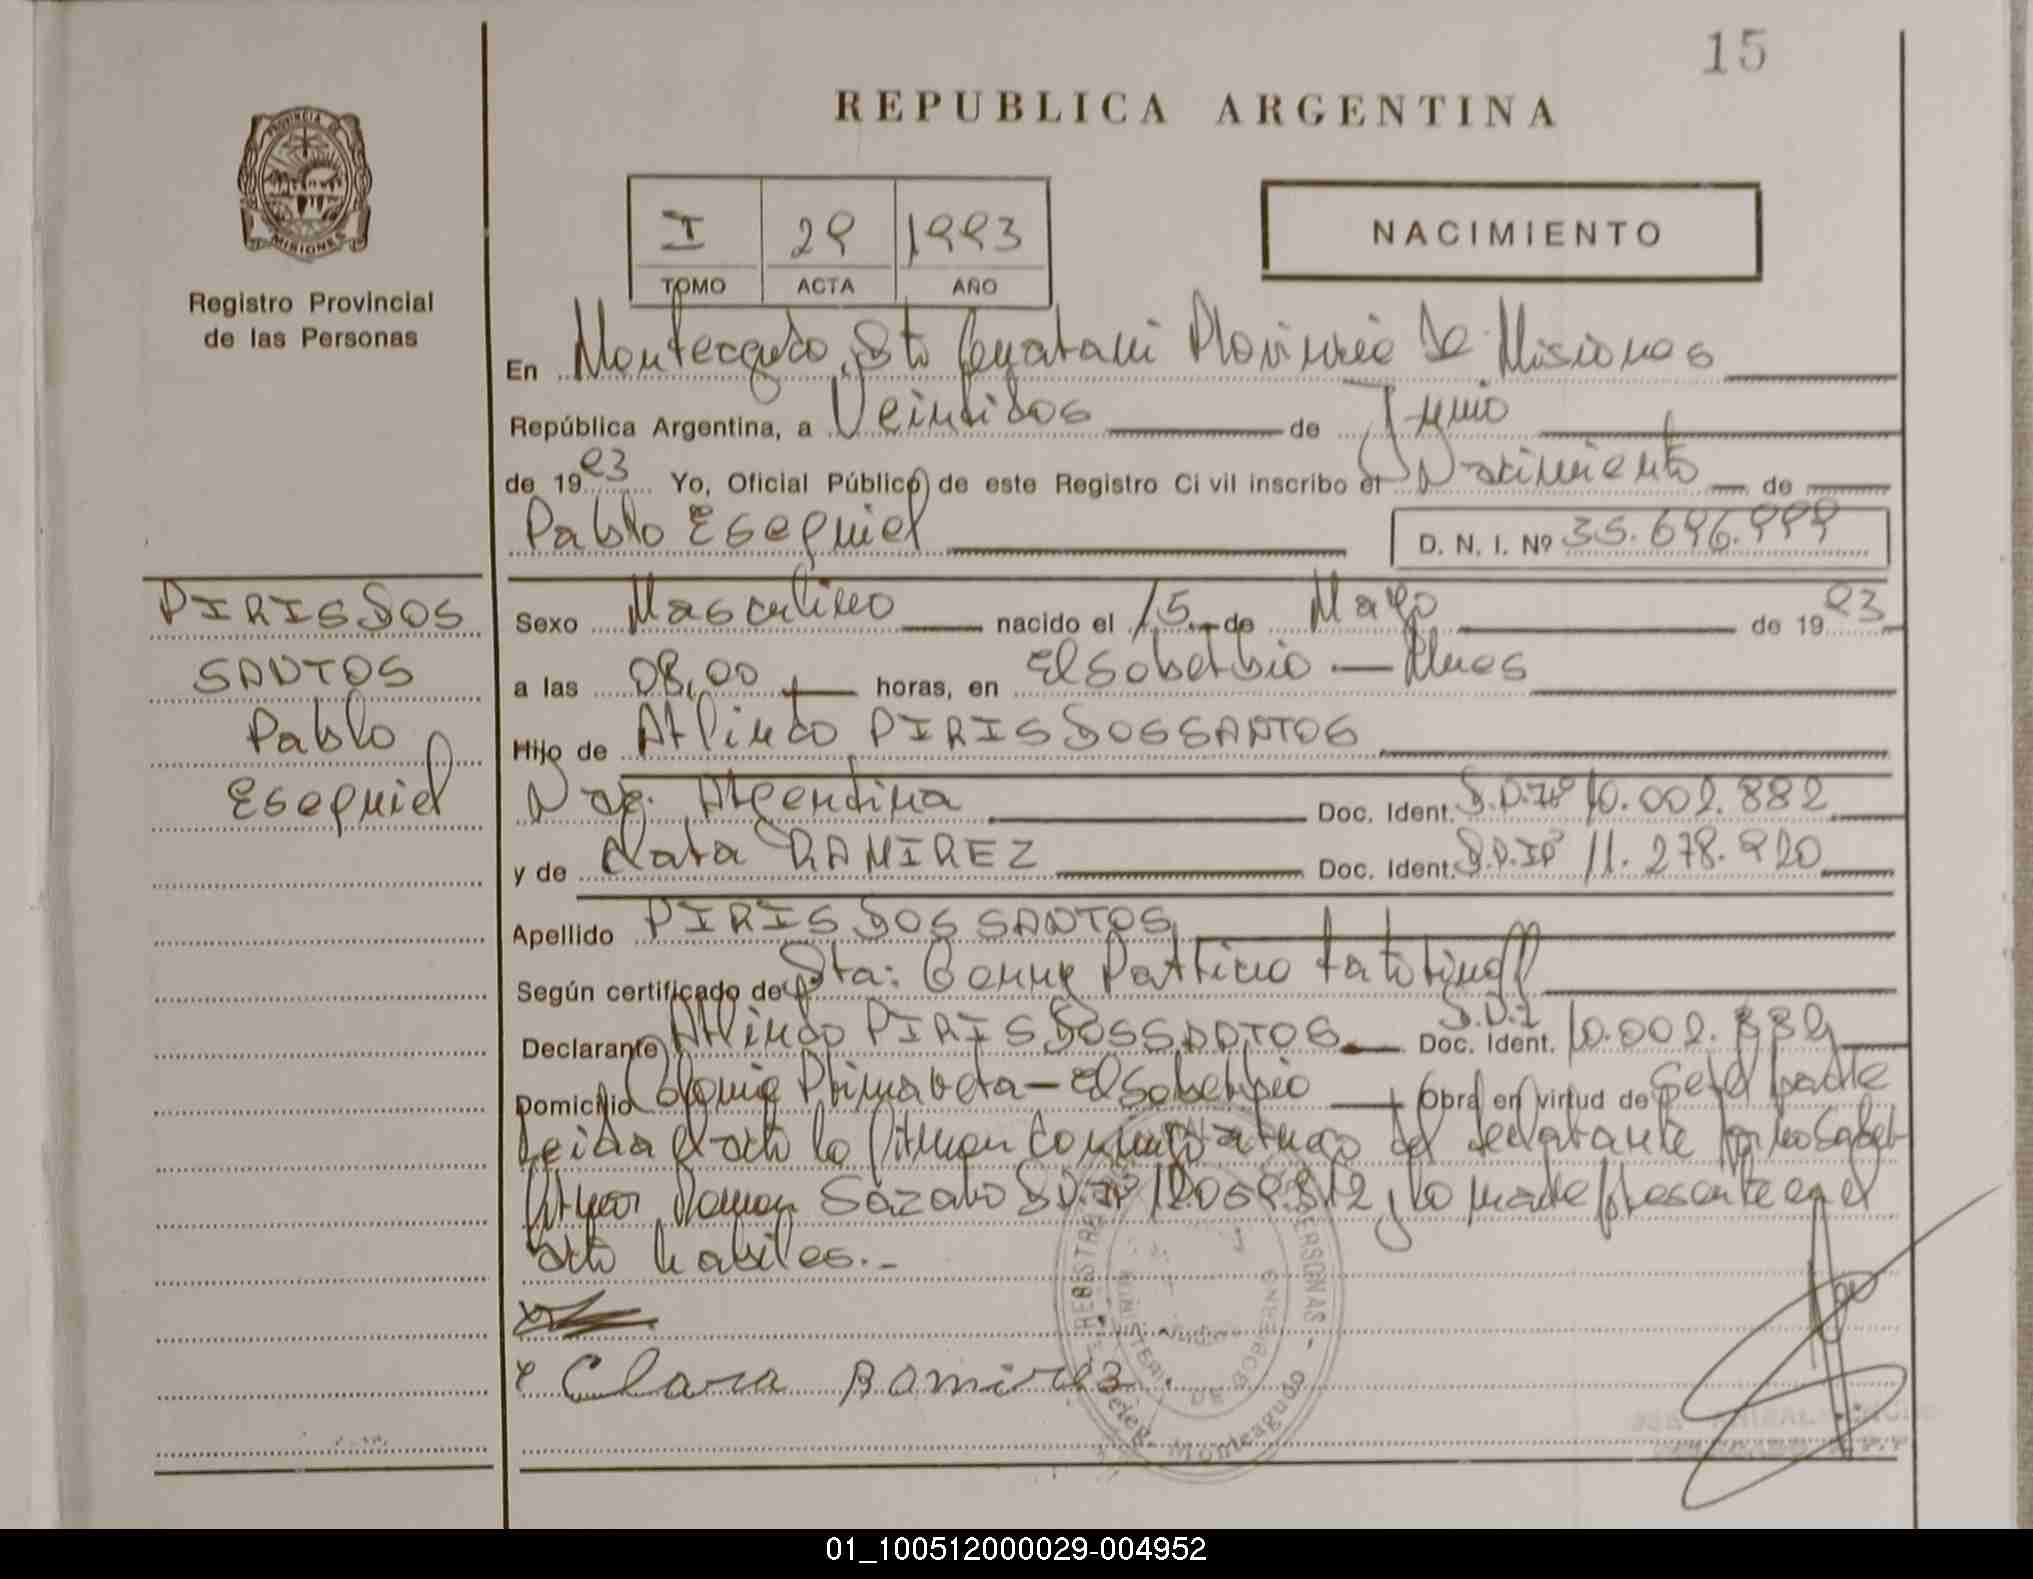 15
REPUBLICA ARGENTINA
PROVINCIA DE
MISIONES
Registro Provincial
de las Personas
I 29 1993
TOMO ACTA AÑO
NACIMIENTO
En Monteagudo, Dto Guarani Provincia de Misiones
República Argentina, a Veintidos de Junio
de 1993 Yo, Oficial Público de este Registro Civil inscribo el Nacimiento de
Pablo Esequiel D. N. I. Nº
PIRIS DOS
SANTOS
Pablo
Esequiel
Sexo Masculino nacido el 15 de Mayo de 1993
a las 08,00 horas, en El Soberbio — Mnes
Hijo de Arlindo PIRIS DOS SANTOS
Nac. Argentina Doc. Ident. D.N.Iº 10.002.882
y de Clara RAMIREZ Doc. Ident. D.N.Iº 11.278.920
Apellido PIRIS DOS SANTOS
Según certificado de Pta:
Declarante Arlindo PIRIS DOS SANTOS Doc. Ident. D.N.I 10.002.882
Domicilio Colonia Primavera - El Soberbio Obra en virtud de ser el padre
Leida el acta la firman conmigo a ruego del declarante por no saber
firmar Ramon D.N.Iº y la madre presente en el
acto habiles.-
x Clara Ramirez
REGISTRO PERSONAS - Deleg. Monteagudo
MINISTERIO DE GOBIERNO
01_100512000029-004952